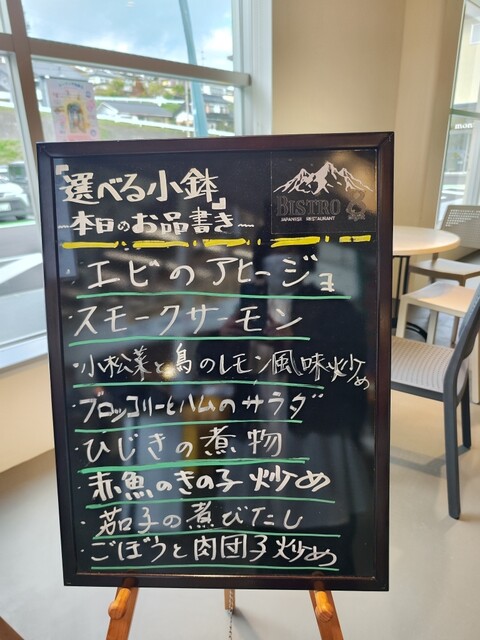 『選べる小鉢』
~本日のお品書き~
BISTRO
JAPANESE RESTAURANT
・エビのアヒージョ
・スモークサーモン
・小松菜と鳥のレモン風味炒め
・ブロッコリーとハムのサラダ
・ひじきの煮物
・赤魚のきの子炒め
・茄子の煮びたし
・ごぼうと肉団子炒め